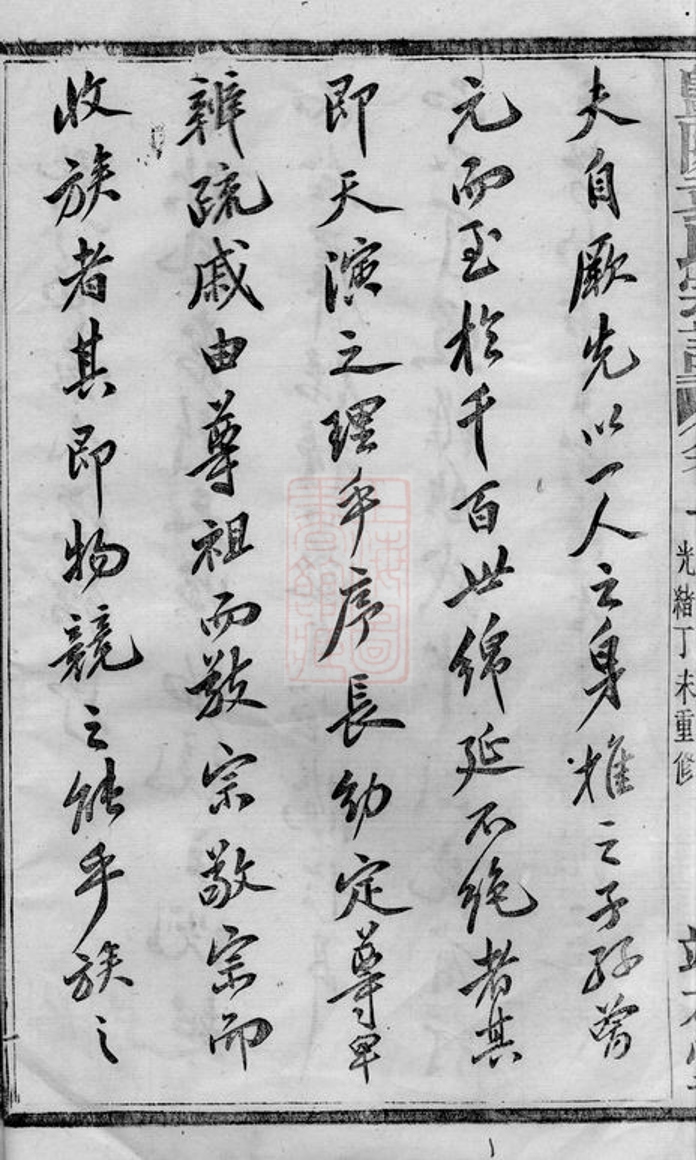 夫自厥先以一人之身推之子孫曾
元而至於千百世綿延不絕者其
即天演之理乎序長幼定尊卑
辨疏戚由尊祖而敬宗敬宗而
收族者其即物競之能乎族之
光緒丁未重修